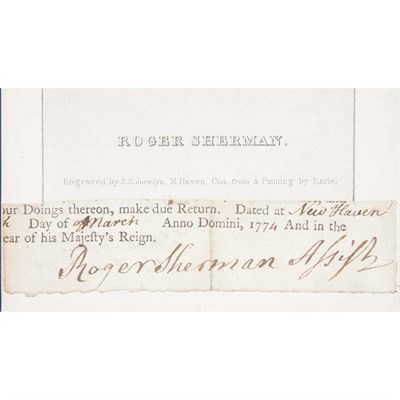 ROGER SHERMAN.
Engraved by S.S. Jocelyn, N. Haven, Con. from a Painting by Earle.
our Doings thereon, make due Return. Dated at New Haven
h Day of March Anno Domini, 1774 And in the
ear of his Majeſty's Reign.
Roger Sherman Aſsiſt